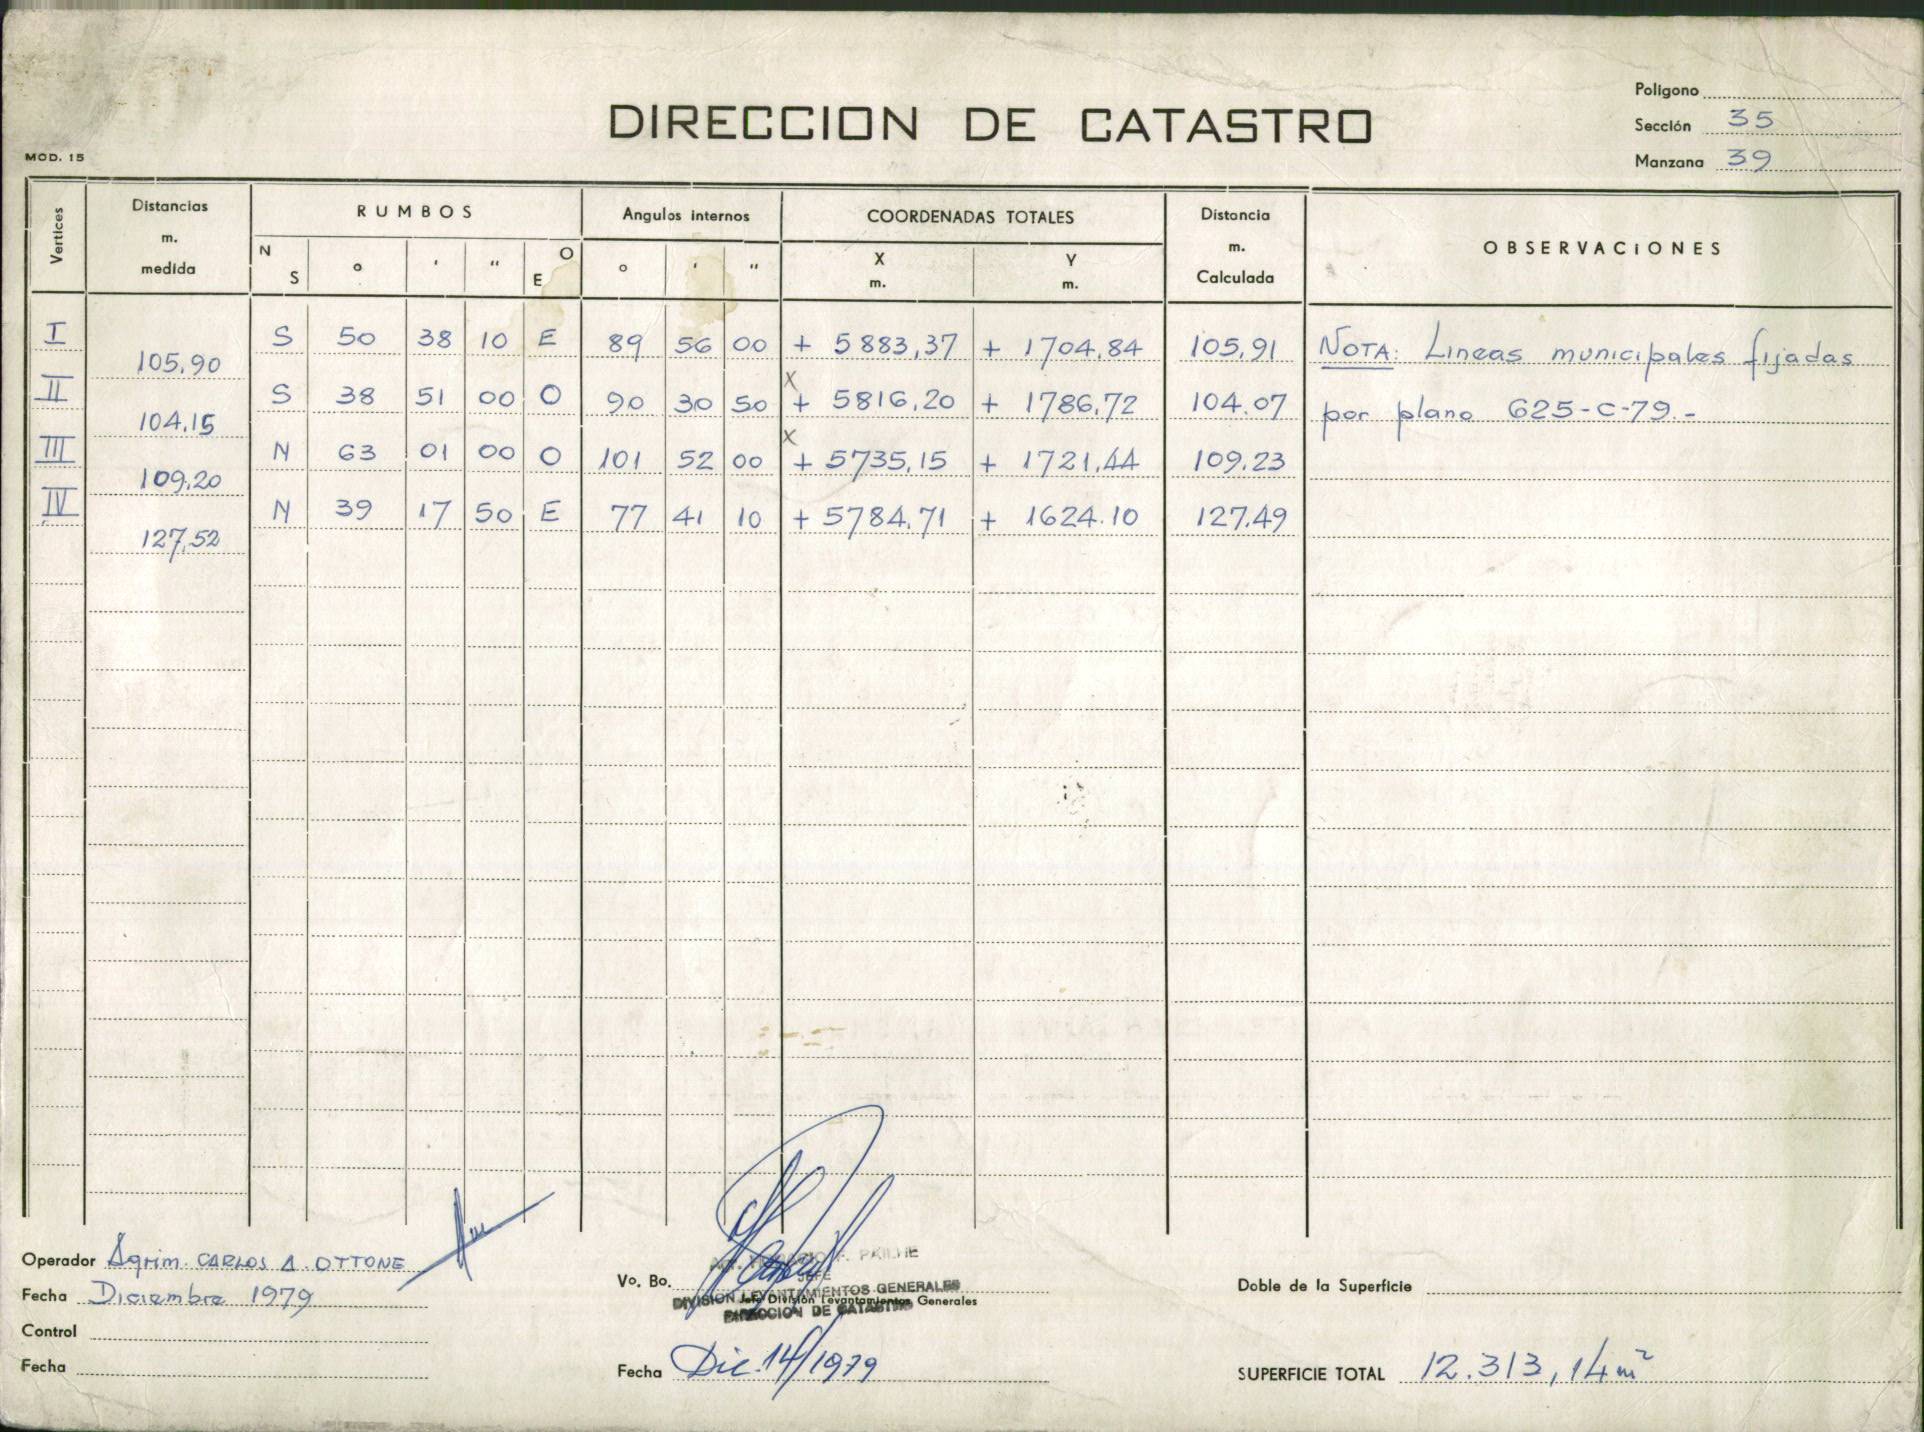 Poligono
DIRECCION DE CATASTRO
Sección 35
MOD. 15
Manzana 39
Vertices
Distancias m. medida
RUMBOS
N S ° ' " O E
Angulos internos
° ' "
COORDENADAS TOTALES
X m. Y m.
Distancia m. Calculada
OBSERVACIONES
I 105,90 S 50 38 10 E 89 56 00 + 5883,37 + 1704,84 105,91 NOTA: Lineas municipales fijadas
II 104,15 S 38 51 00 O 90 30 50 x + 5816,20 + 1786,72 104.07 por plano 625-C-79.-
III 109,20 N 63 01 00 O 101 52 00 x + 5735,15 + 1721,44 109.23
IV 127,52 N 39 17 50 E 77 41 10 + 5784,71 + 1624.10 127.49
Operador Agrim. CARLOS A. OTTONE
Fecha Diciembre 1979
Control
Fecha
F. PAILHE
JEFE
Vo. Bo.
DIVISION LEVANTAMIENTOS GENERALES
Jefe División Levantamientos Generales
DIRECCION DE CATASTRO
Fecha Dic. 14/1979
Doble de la Superficie
SUPERFICIE TOTAL 12.313,14 m²